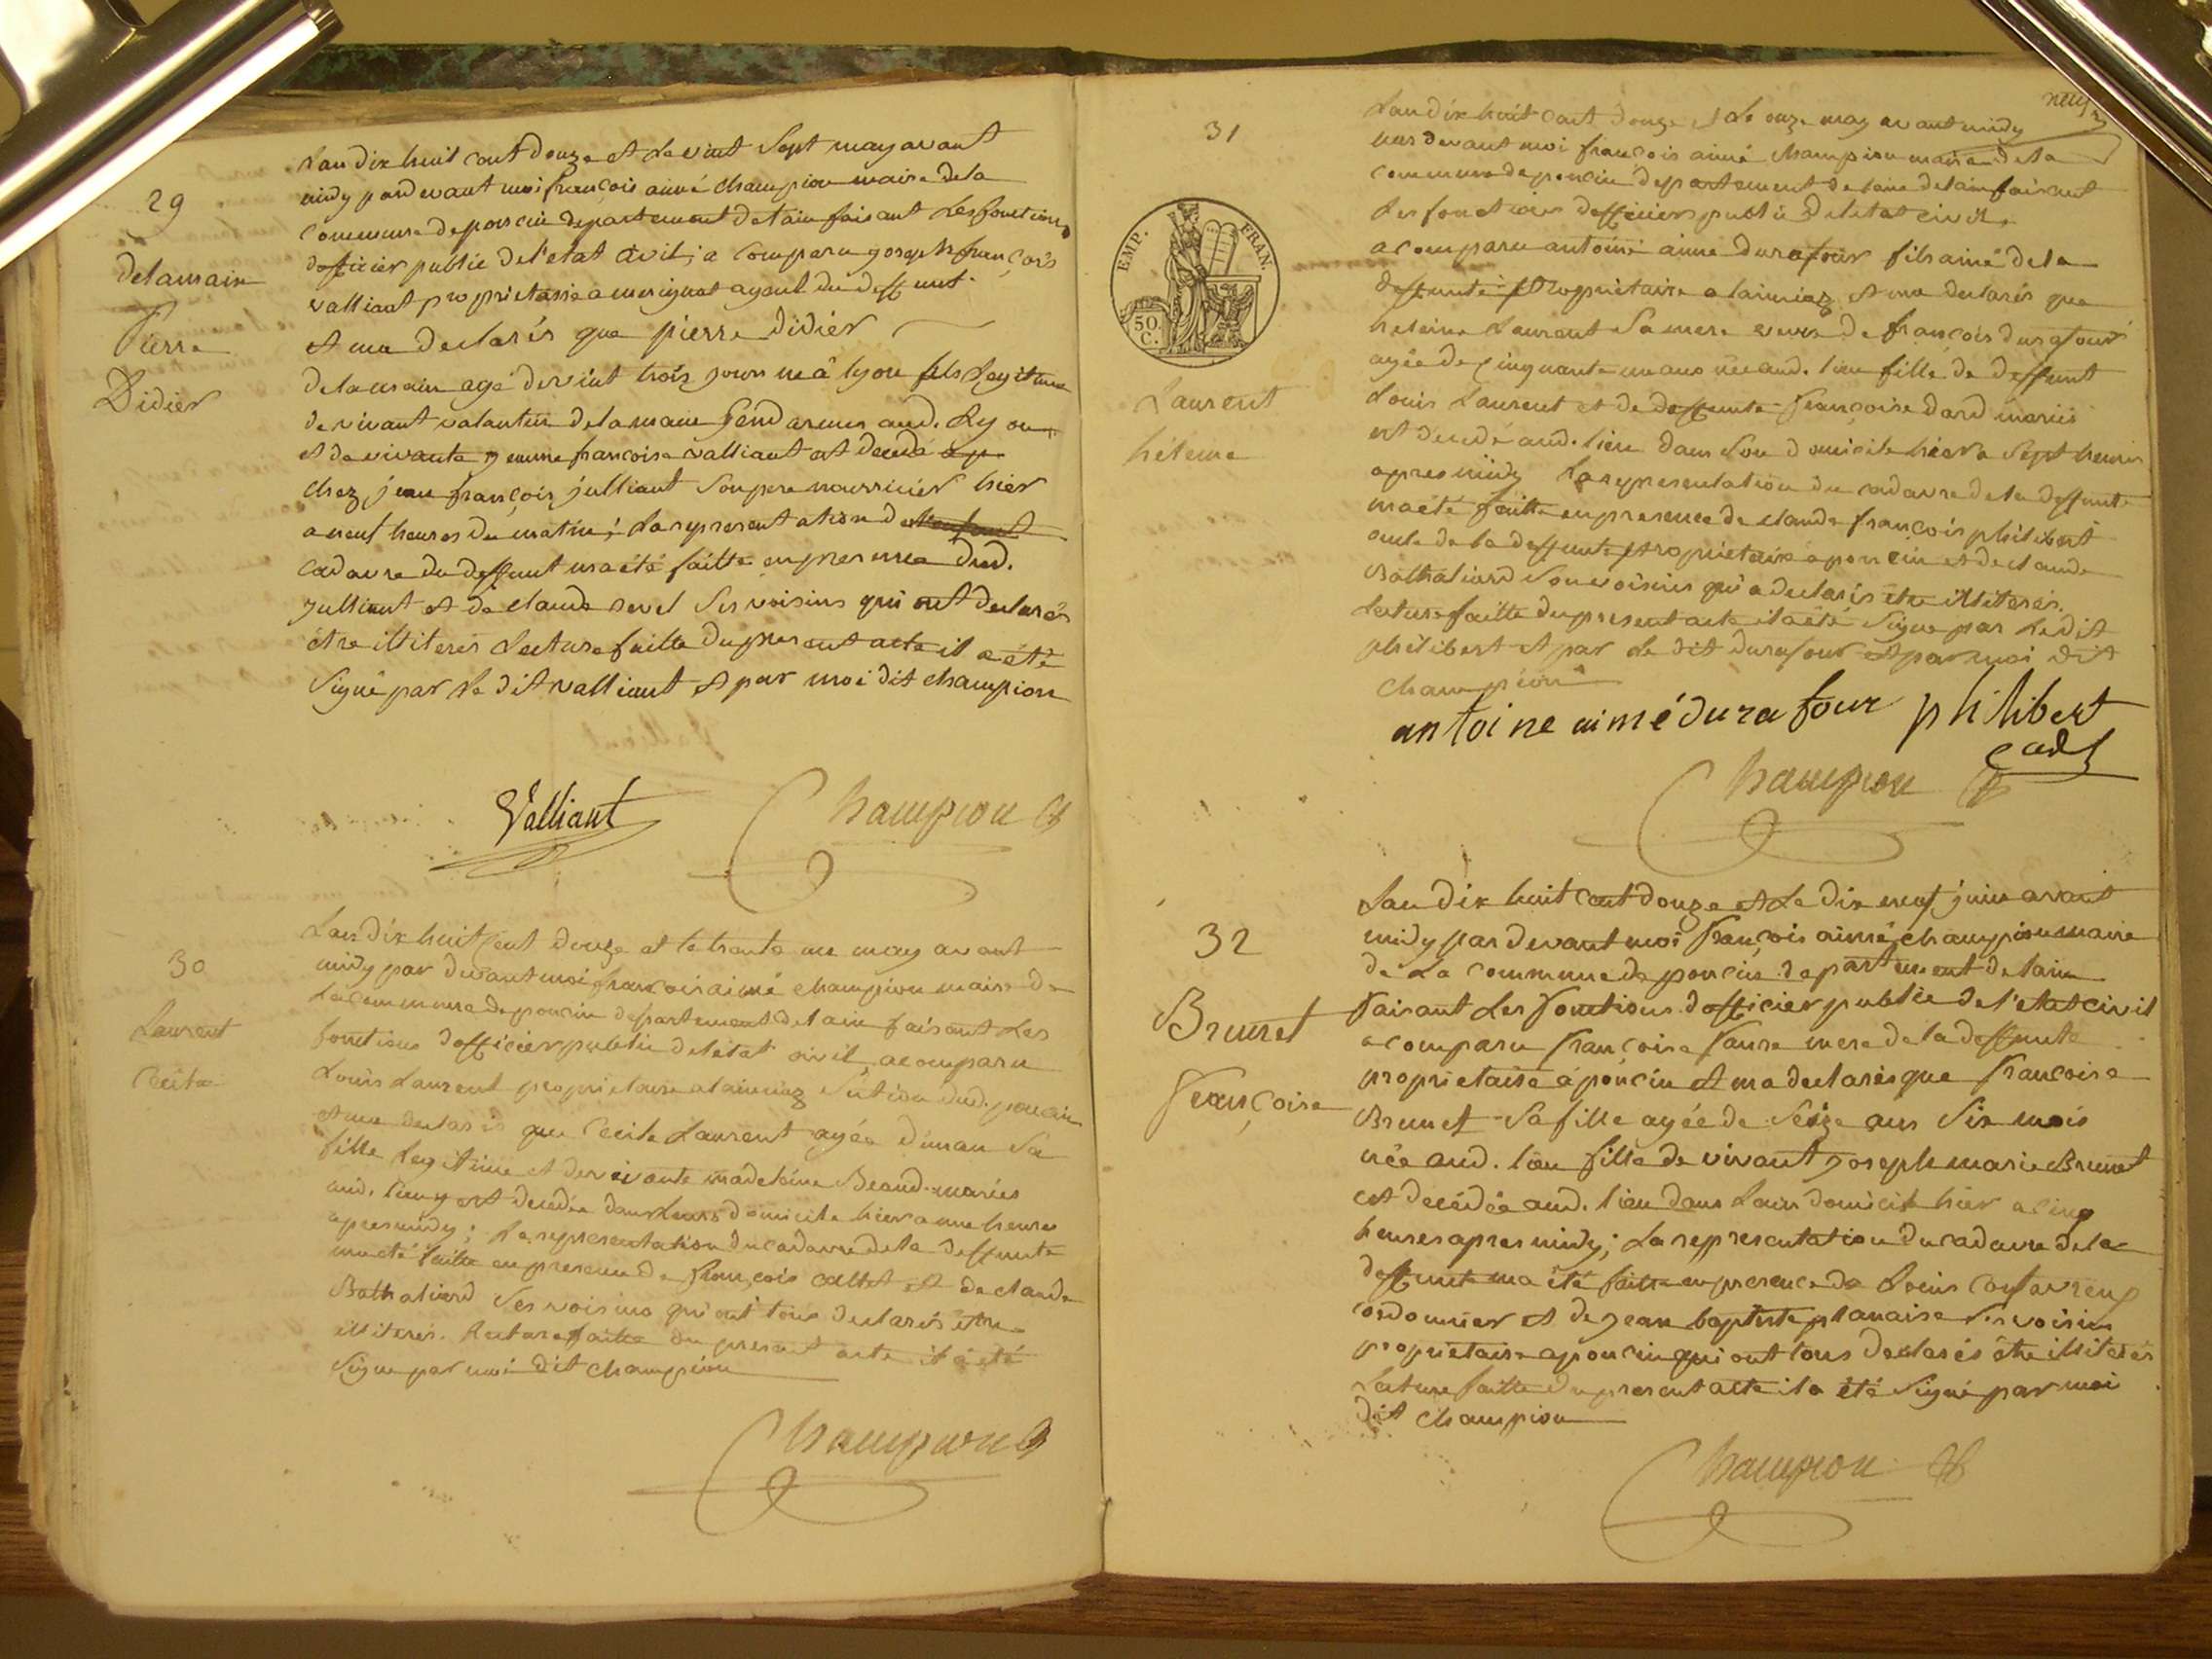 29
delamain
Pierre
Didier
Lan dix huit cent douze et le vint Sept may avant
midy pardevant moi françois aimé champion maire dela
commune de poncin departement delain faisant les fonctions
dofficier public del'etat civil, a comparu joseph françois
valliant proprietaire a merignat ayeul du deffunt
et ma declarés que pierre Didier
delamain agé de vint trois jours né à lyon fils legitime
de vivant valantin delamain gendarmes aud. Lyon
et de vivante jeanne francoise valliant est decedé
chez jean françois julliant Son pere nourricier hier
a neuf heures du matin; La representation de l'enfant
cadavre du deffunt ma été faitte en presence dud.
julliant et de claude revel Ses voisins qui ont declarés
étre illiterés Lecture faitte du present acte il a été
Signé par le dit valliant et par moi dit champion
Valliant
Champion
30
Laurent
Cecile
Lan dix huit cent douze et le trente un may avant
midy par devant moi françois aimé champion maire de
la commune de poncin departement delain faisant les
fonctions dofficier public deletat civil, a comparu
Louis Laurent proprietaire a laimiaz Section dud. poncin
et ma declarés que Cecile Laurent agée d'un an Sa
fille legitime et de vivante madeleine Beaud mariés
aud. lieu y est decedée dans leurs domicile hier a une heure
apres midy; La representation du cadavre dela deffunte
ma été faitte en presence de françois collet et de claude
Bathaliard Ses voisins qui ont tous declarés étre
illiterés. Lecture faitte du present acte il a été
Signe par moi dit champion
Champion
neuf
31
EMP. FRAN.
50
C.
Laurent
heleine
Lan dix huit cent douze et Le onze may avant midy
par devant moi françois aimé champion maire dela
commune de poncin departement de laine delain faisant
les fonctions dofficier public deletat civil,
a comparu antoine aimé durafour fils ainé dela
deffunte proprietaire a laimiaz et ma declarés que
heleine Laurent Sa mere veuve de françois durafour
agée de cinquante un ans née aud. lieu fille de deffunt
Louis Laurent et de deffunte françoise dard mariés
est decedé aud. lieu dans Son domicile hier a Sept heures
apres midy La representation du cadavre dela deffunte
ma été faitte en presence de claude françois philibert
oncle de la deffunte proprietaire a poncin et de claude
Bathaliard Son voisins qui a declarés étre illiterés.
Lecture faitte du present acte il a été Signé par Ledit
philibert et par le dit durafour et par moi dit
champion
antoine aimé durafour philibert
cadt
Champion
32
Brunet
Françoise
Lan dix huit cent douze et Le dix neuf juin avant
midy par devant moi François aimé champion maire
de La commune de poncin departement delain
Faisant Les Fonctions dofficier public de l'etat civil
a comparu françoise Faure mere de la deffunte
proprietaire a poncin et ma declarés que francoise
Brunet Sa fille agée de Seize ans Six mois
née aud. lieu fille de vivant joseph marie Brunet
est decédée aud. lieu dans Leur domicile hier a cinq
heures apres midy; La representation du cadavre dela
deffunte ma été faitte en presence de Louis
cordonnier et de jean baptiste planaise Ses voisins
proprietaire a poncin qui ont tous declarés étre illiterés
Lecture faitte du present acte il a été Signé par moi
dit champion
Champion